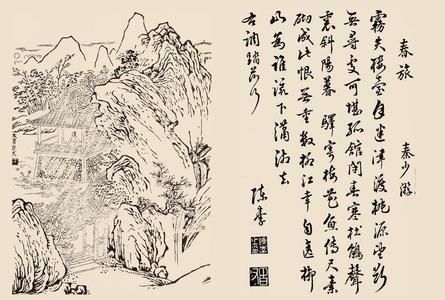 春旅 秦少游
霧失楼臺月迷津渡桃源望断
無尋處可堪孤館閉春寒杜鵑聲
裏斜陽暮 驛寄梅花魚傳尺素
砌成此恨無重數郴江幸自遶郴
山為誰流下瀟湘去
右調踏莎行